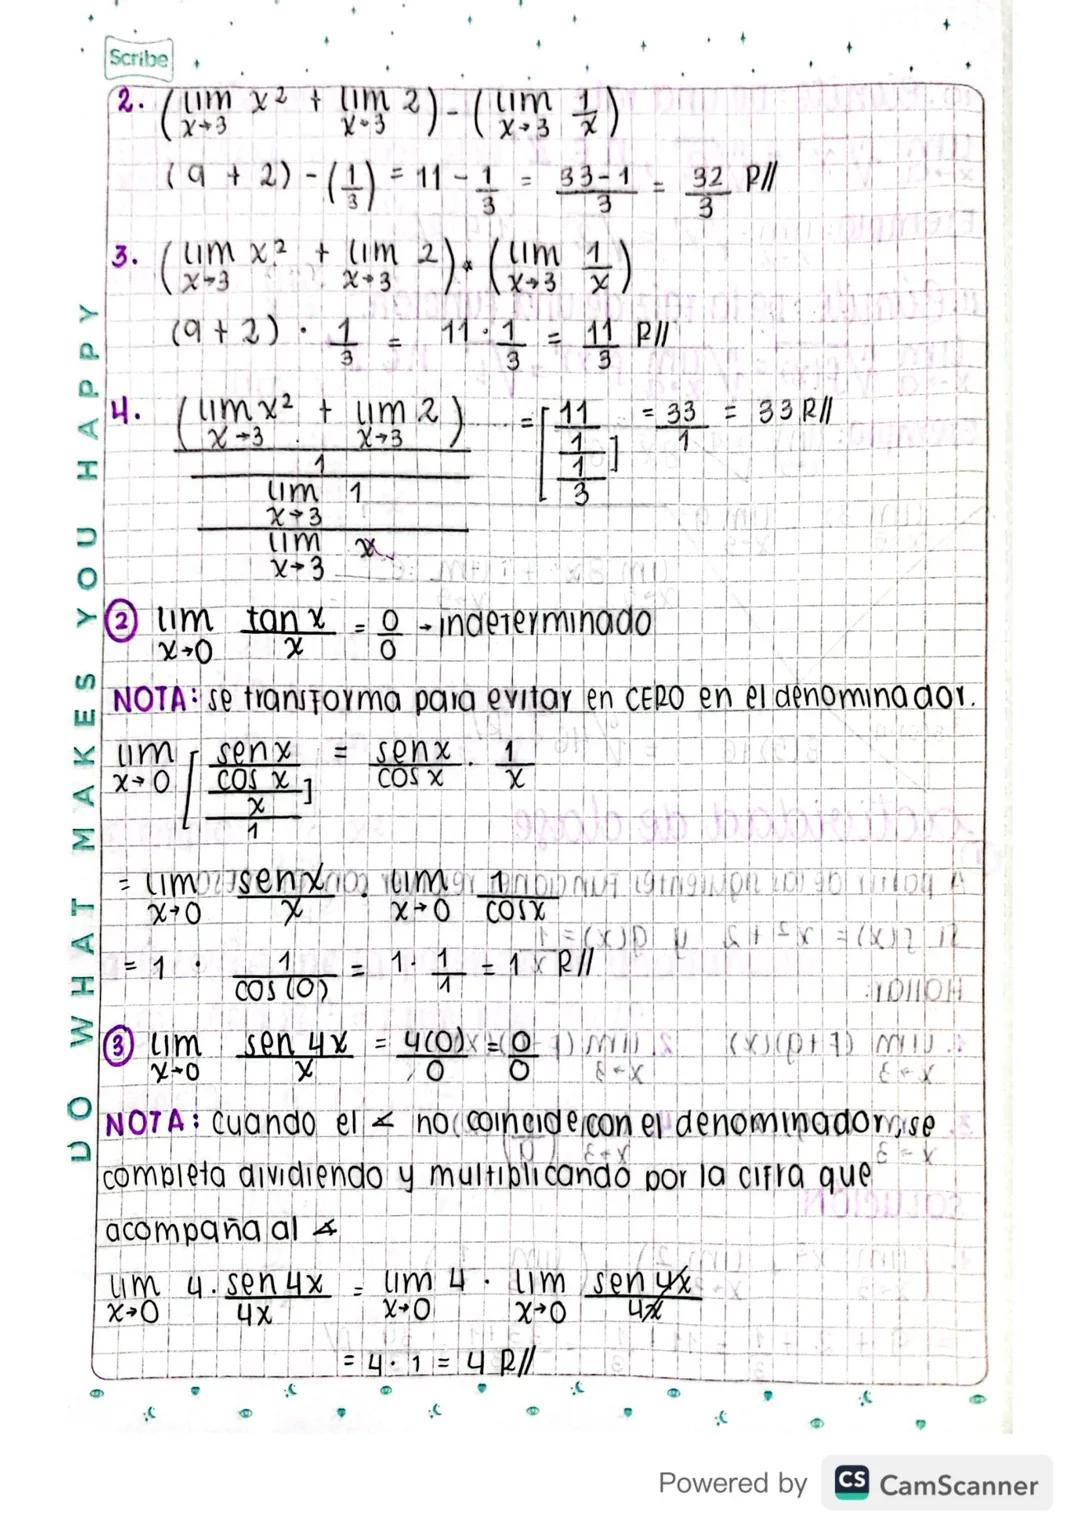 Scribe
2. (lim x→3 x² + lim x→3 2) - (lim x→3 1/x)
(9 + 2) - (1/3) = 11 - 1/3 = 33-1/3 = 32/3 R//
3. (lim x→3 x² + lim x→3 2) * (lim x→3 1/x)
(9 + 2) · 1/3 = 11 · 1/3 = 11/3 R//
4. (lim x→3 x² + lim x→3 2) / 1 / lim x→3 1 / lim x→3 x = [11/1 / 1/3] = 33/1 = 33 R//
② lim x→0 tan x/x = 0/0 - indeterminado
NOTA: se transforma para evitar en CERO en el denominador.
lim x→0 [sen x/cos x / x/1] = sen x/cos x · 1/x
= lim x→0 sen x/x · lim x→0 1/cos x
= 1 · 1/cos (0) = 1 · 1/1 = 1 R//
③ lim x→0 sen 4x/x = 4(0)/0 = 0/0
NOTA: cuando el ∡ no coincide con el denominador, se
completa dividiendo y multiplicando por la cifra que
acompaña al ∡
lim x→0 4 · sen 4x/4x = lim x→0 4 · lim x→0 sen 4x/4x
= 4 · 1 = 4 R//
DO WHAT MAKES YOU HAPPY
Powered by CS CamScanner